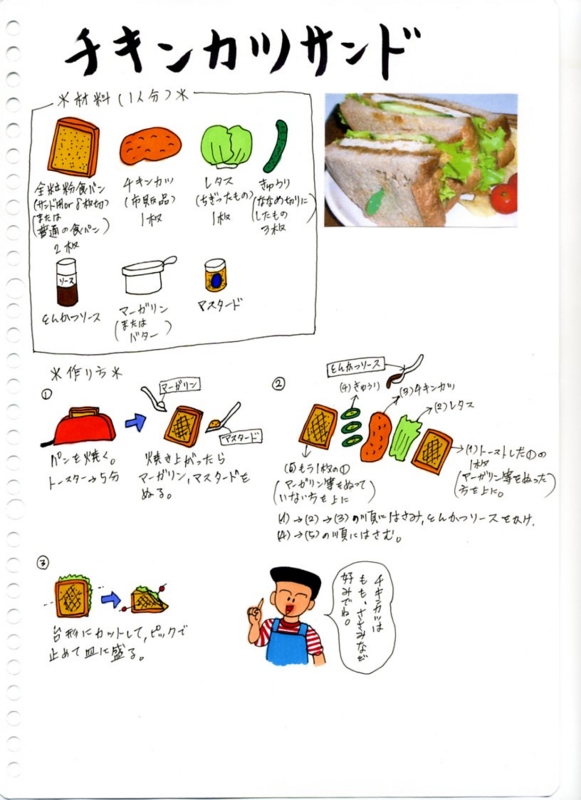 チキンカツサンド
*材料(1人分)*
全粒粉食パン
(サンド用or8枚切)
または
普通の食パン
2枚
チキンカツ
(市販品)
1枚
レタス
(ちぎったもの)
1枚
きゅうり
(ななめ切りに
したもの)
3枚
ソース
とんかつソース
マーガリン
(または
バター)
マスタード
*作り方*
①
マーガリン
マスタード
パンを焼く。
トースター→5分
焼き上がったら
マーガリン、マスタードを
ぬる。
②
とんかつソース
(4)きゅうり
(3)チキンカツ
(2)レタス
(1)トーストした①の
1枚
(マーガリン等をぬった
方を上に。
(5)もう1枚の①
(マーガリン等をぬって
いない方を上に)
(1)→(2)→(3)の順にはさみ、とんかつソースをかけ、
(4)→(5)の順にはさむ。
③
台形にカットして、ピックで
止めて皿に盛る。
チキンカツは
もも、ささみなど
好みでね。